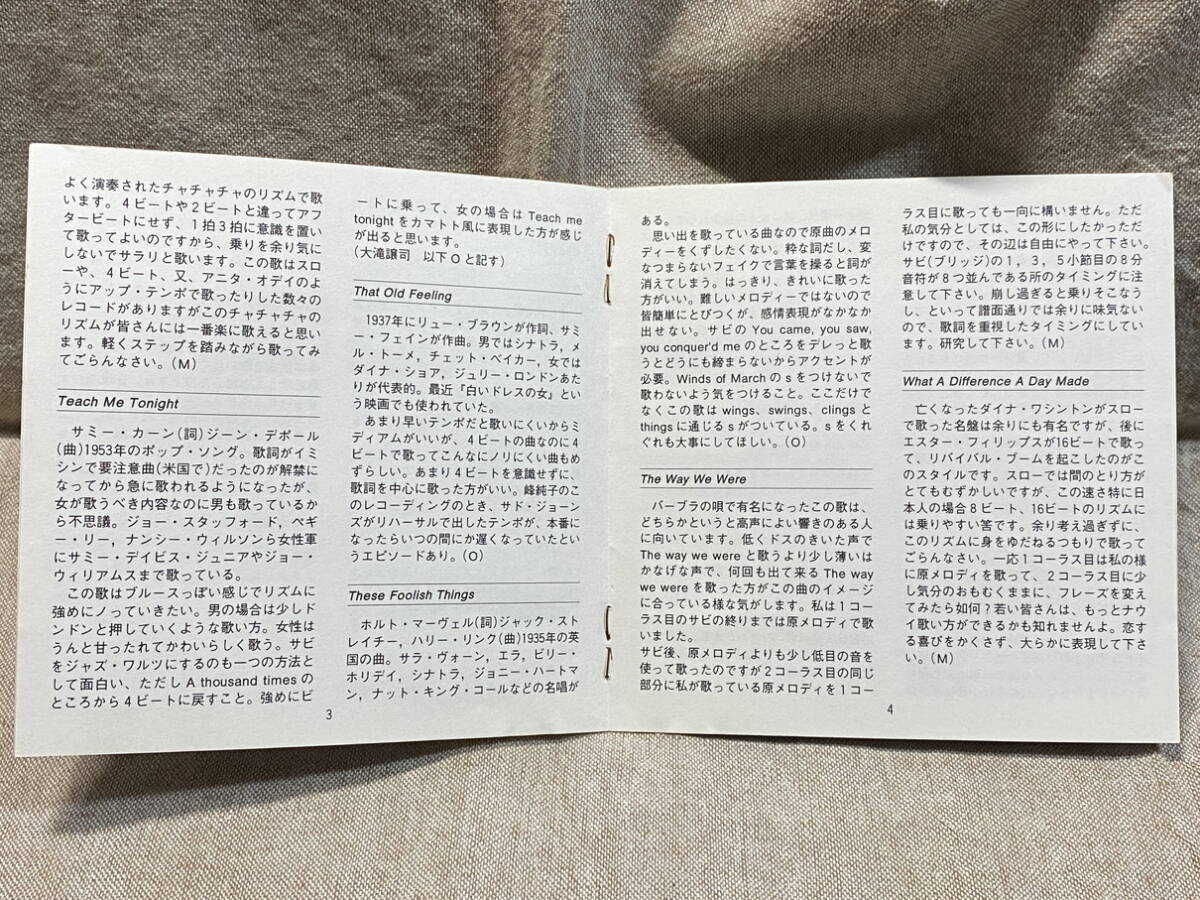 よく演奏されたチャチャチャのリズムで歌
います。4ビートや2ビートと違ってアフ
タービートにせず、1拍3拍に意識を置い
て歌ってよいのですから、乗りを余り気に
しないでサラリと歌います。この歌はスロ
ーや、4ビート、又、アニタ・オデイのよ
うにアップ・テンポで歌ったりした数々の
レコードがありますがこのチャチャチャの
リズムが皆さんには一番楽に歌えると思い
ます。軽くステップを踏みながら歌ってみ
てごらんなさい。(M)
Teach Me Tonight
サミー・カーン(詞)ジーン・デポール
(曲)1953年のポップ・ソング。歌詞がイミ
シンで要注意曲(米国で)だったのが解禁に
なってから急に歌われるようになったが、
女が歌うべき内容なのに男も歌っているか
ら不思議。ジョー・スタッフォード，ペギ
ー・リー，ナンシー・ウィルソンら女性軍
にサミー・デイビス・ジュニアやジョー・
ウィリアムスまで歌っている。
この歌はブルースっぽい感じでリズムに
強めにノッていきたい。男の場合は少しド
ンドンと押していくような歌い方。女性は
うんと甘ったれてかわいらしく歌う。サビ
をジャズ・ワルツにするのも一つの方法と
して面白い、ただし A thousand times の
ところから4ビートに戻すこと。強めにビ
3
ートに乗って、女の場合は Teach me
tonight をカマトト風に表現した方が感じ
が出ると思います。
(大滝譲司 以下Oと記す)
That Old Feeling
1937年にリュー・ブラウンが作詞、サミ
ー・フェインが作曲。男ではシナトラ，メ
ル・トーメ，チェット・ベイカー，女では
ダイナ・ショア，ジュリー・ロンドンあた
りが代表的。最近『白いドレスの女』とい
う映画でも使われていた。
あまり早いテンポだと歌いにくいからミ
ディアムがいいが、4ビートの曲なのに4
ビートで歌ってこんなにノリにくい曲もめ
ずらしい。あまり4ビートを意識せずに、
歌詞を中心に歌った方がいい。峰純子のこ
のレコーディングのとき、サド・ジョーン
ズがリハーサルで出したテンポが、本番に
なったらいつの間にか遅くなっていたとい
うエピソードあり。(O)
These Foolish Things
ホルト・マーヴェル(詞)ジャック・スト
レイチー，ハリー・リンク(曲)1935年の英
国の曲。サラ・ヴォーン，エラ，ビリー・
ホリデイ，シナトラ，ジョニー・ハートマ
ン，ナット・キング・コールなどの名唱が
ある。
思い出を歌っている曲なので原曲のメロ
ディーをくずしたくない。粋な詞だし、変
なつまらないフェイクで言葉を操ると詞が
消えてしまう。はっきり、きれいに歌った
方がいい。難しいメロディーではないので
皆簡単にとびつくが、感情表現がなかなか
出せない。サビの You came, you saw,
you conquer'd me のところをデレっと歌
うとどうにも締まらないからアクセントが
必要。Winds of March の s をつけないで
歌わないよう気をつけること。ここだけで
なくこの歌は wings、swings、clings と
things に通じる s がついている。s をくれ
ぐれも大事にしてほしい。(O)
The Way We Were
バーブラの唄で有名になったこの歌は、
どちらかというと高声によい響きのある人
に向いています。低くドスのきいた声で
The way we were と歌うより少し薄いは
かなげな声で、何回も出て来る The way
we were を歌った方がこの曲のイメージ
に合っている様な気がします。私は1コー
ラス目のサビの終りまでは原メロディで歌
いました。
サビ後、原メロディよりも少し低目の音を
使って歌ったのですが2コーラス目の同じ
部分に私が歌っている原メロディを1コー
4
ラス目に歌っても一向に構いません。ただ
私の気分としては、この形にしたかっただ
けですので、その辺は自由にやって下さい。
サビ(ブリッジ)の1，3，5小節目の8分
音符が8つ並んである所のタイミングに注
意して下さい。崩し過ぎると乗りそこなう
し、といって譜面通りでは余りに味気ない
ので、歌詞を重視したタイミングにしてい
ます。研究して下さい。(M)
What A Difference A Day Made
亡くなったダイナ・ワシントンがスロー
で歌った名盤は余りにも有名ですが、後に
エスター・フィリップスが16ビートで歌っ
て、リバイバル・ブームを起こしたのがこ
のスタイルです。スローでは間のとり方が
とてもむずかしいですが、この速さ特に日
本人の場合8ビート、16ビートのリズムに
は乗りやすい筈です。余り考え過ぎずに、
このリズムに身をゆだねるつもりで歌って
ごらんなさい。一応1コーラス目は私の様
に原メロディを歌って、2コーラス目に少
し気分のおもむくままに、フレーズを変え
てみたら如何？若い皆さんは、もっとナウ
イ歌い方ができるかも知れませんよ。恋す
る喜びをかくさず、大らかに表現して下さ
い。(M)